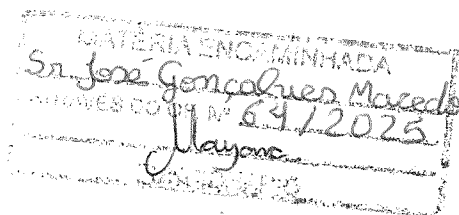 MATÉRIA ENCAMINHADA
Sr. José Gonçalves Macedo
ATRAVÉS DO Nº 64/2025
Mayana